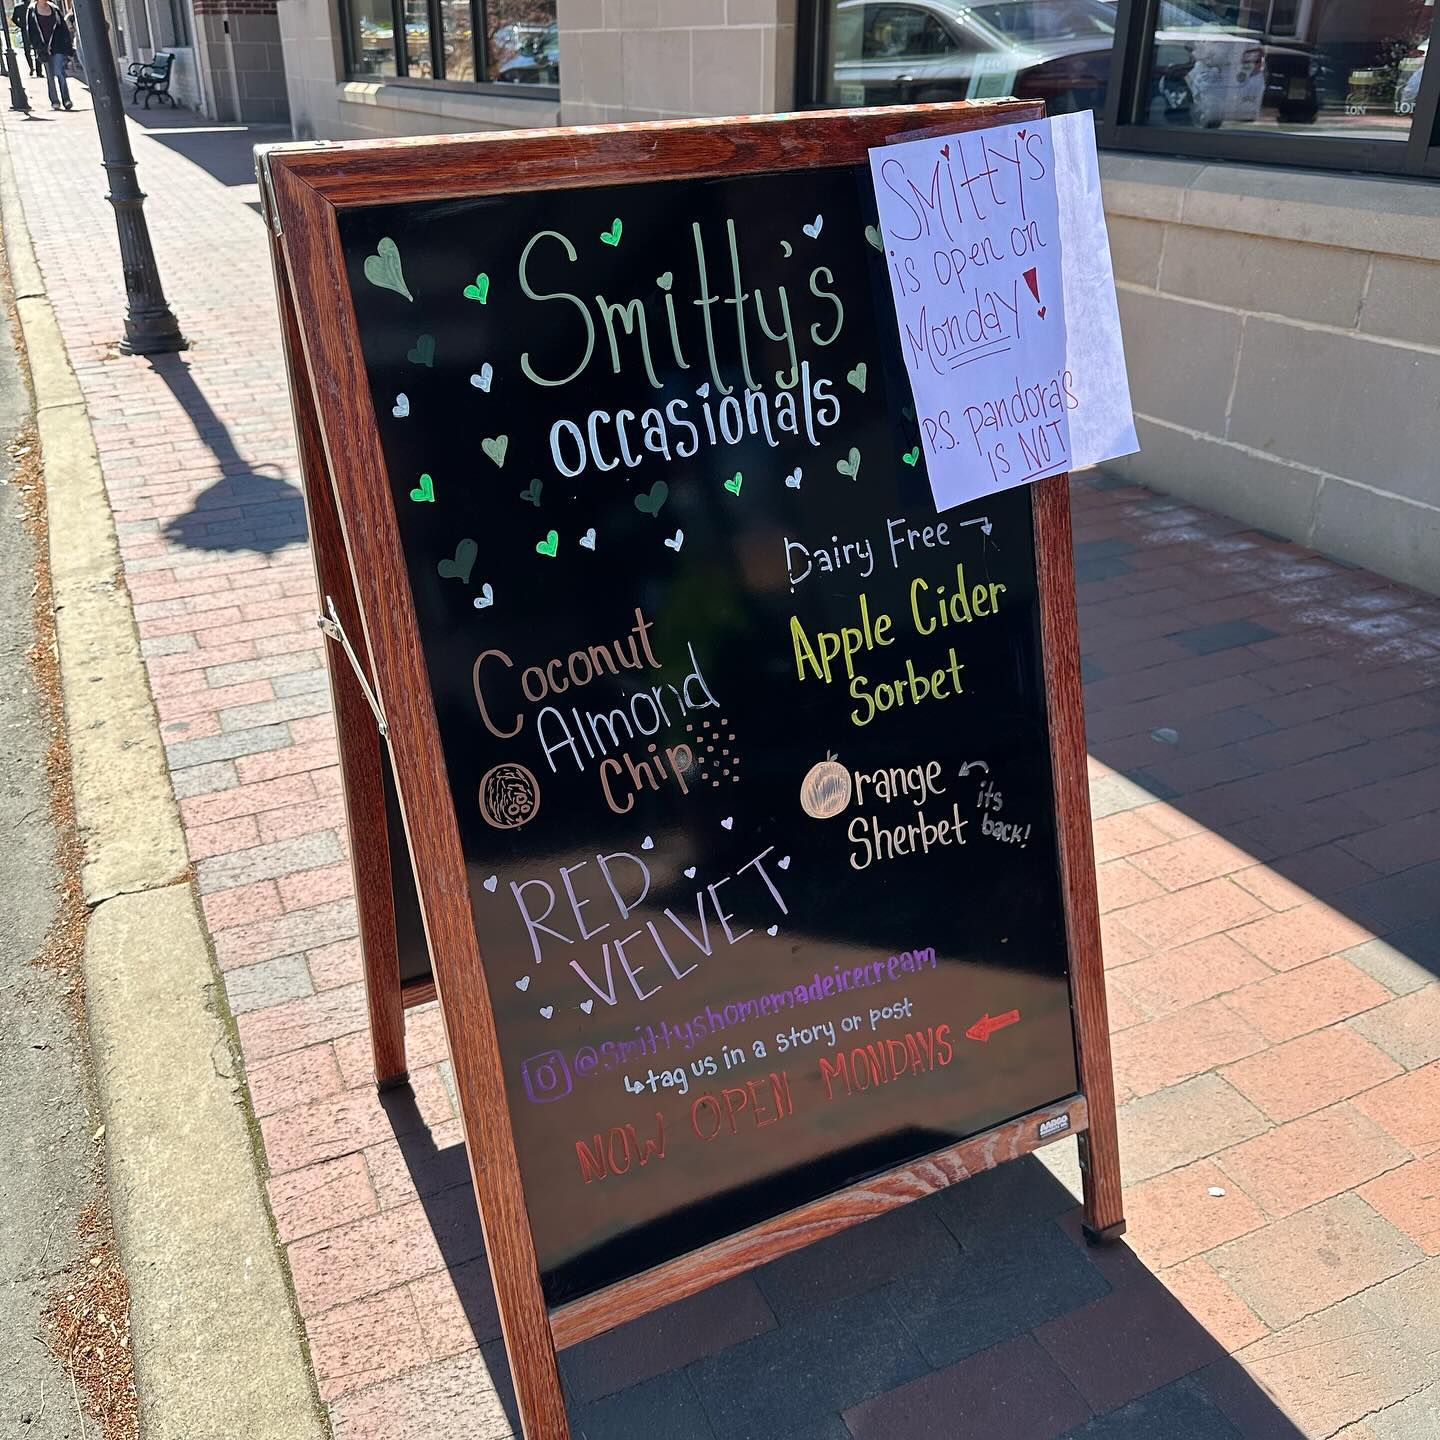 Smitty's
occasionals
Smitty's
is open on
Monday!
P.S. Pandora's
is NOT
Dairy Free
Apple Cider
Sorbet
Coconut
Almond
Chip
Orange
Sherbet
its
back!
RED
VELVET
@smittyshomemadeicecream
tag us in a story or post
NOW OPEN MONDAYS
AARCO
LON